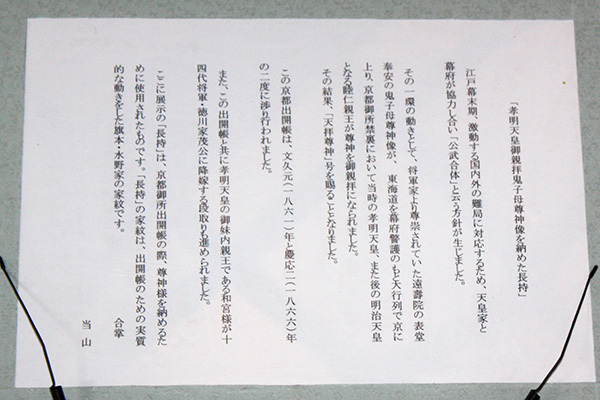 「孝明天皇御親拝鬼子母尊神像を納めた長持」
江戸幕末期、激動する国内外の難局に対応するため、天皇家と
幕府が協力し合い「公武合体」と云う方針が生じました。
その一環の動きとして、将軍家より尊崇されていた遠壽院の表堂
奉安の鬼子母尊神像が、東海道を幕府警護のもと大行列で京に
上り、京都御所禁裏において当時の孝明天皇、また後の明治天皇
となる睦仁親王が尊神を御親拝になられました。
その結果、「天拝尊神」号を賜ることとなりました。
この京都出開帳は、文久元(一八六一)年と慶応二(一八六六)年
の二度に渉り行われました。
また、この出開帳と共に孝明天皇の御妹内親王である和宮様が十
四代将軍・徳川家茂公に降嫁する段取りも進められました。
ここに展示の「長持」は、京都御所出開帳の際、尊神様を納めるた
めに使用されたものです。「長持」の家紋は、出開帳のための実質
的な動きをした旗本・水野家の家紋です。
合掌
当山